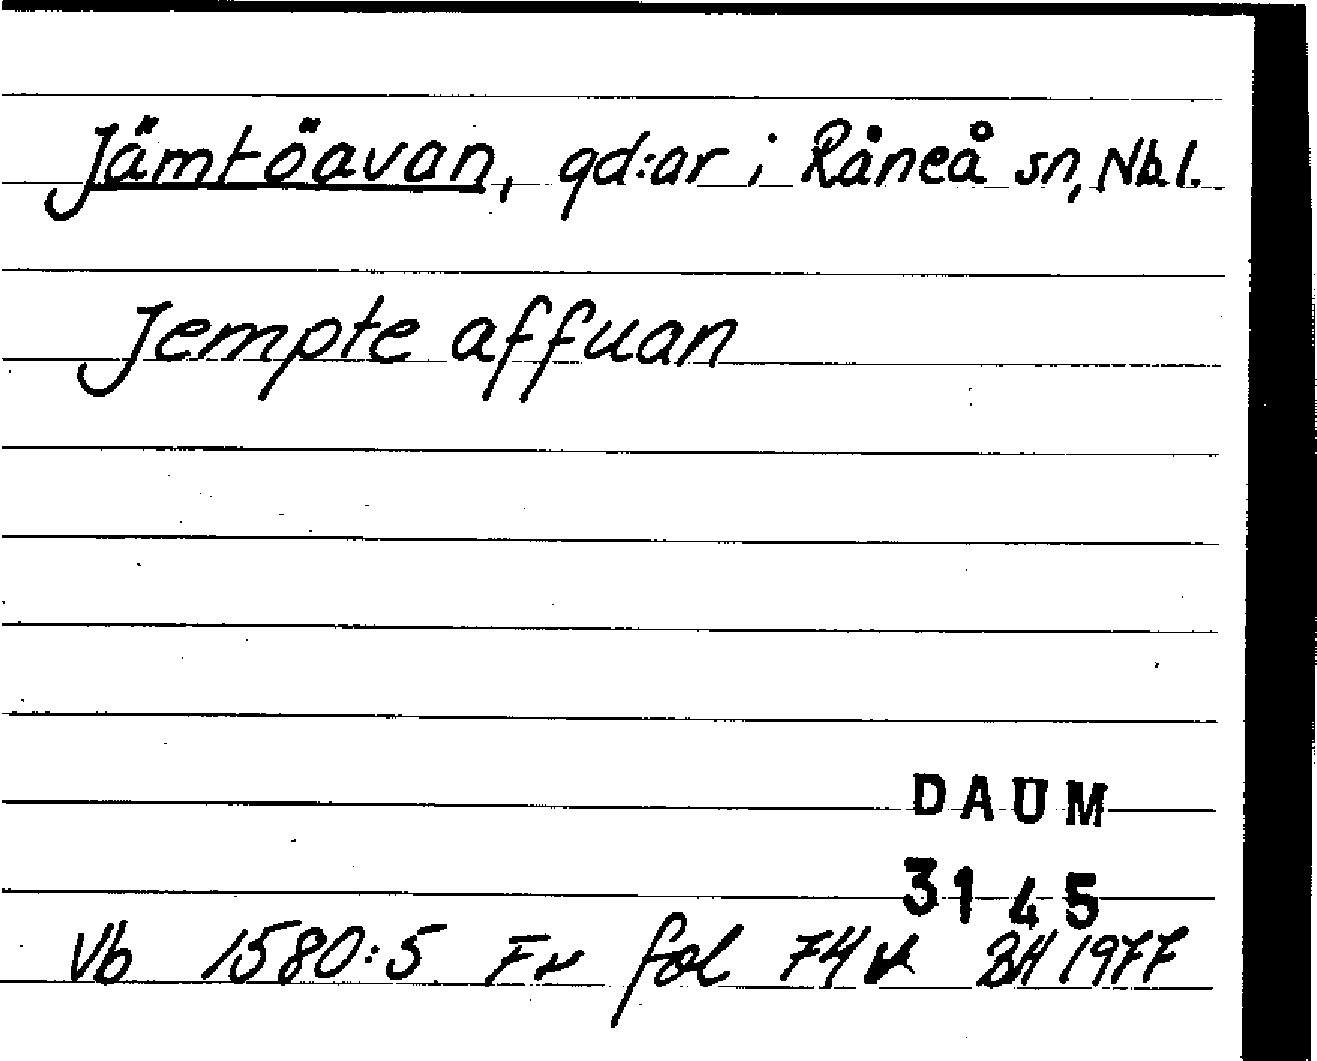 Jämtöavan, gd:ar i Råneå sn, Nb.l.
Jempte affuan
DAUM
3145
Vb 1580:5 Fr fol 74 v BH 1977